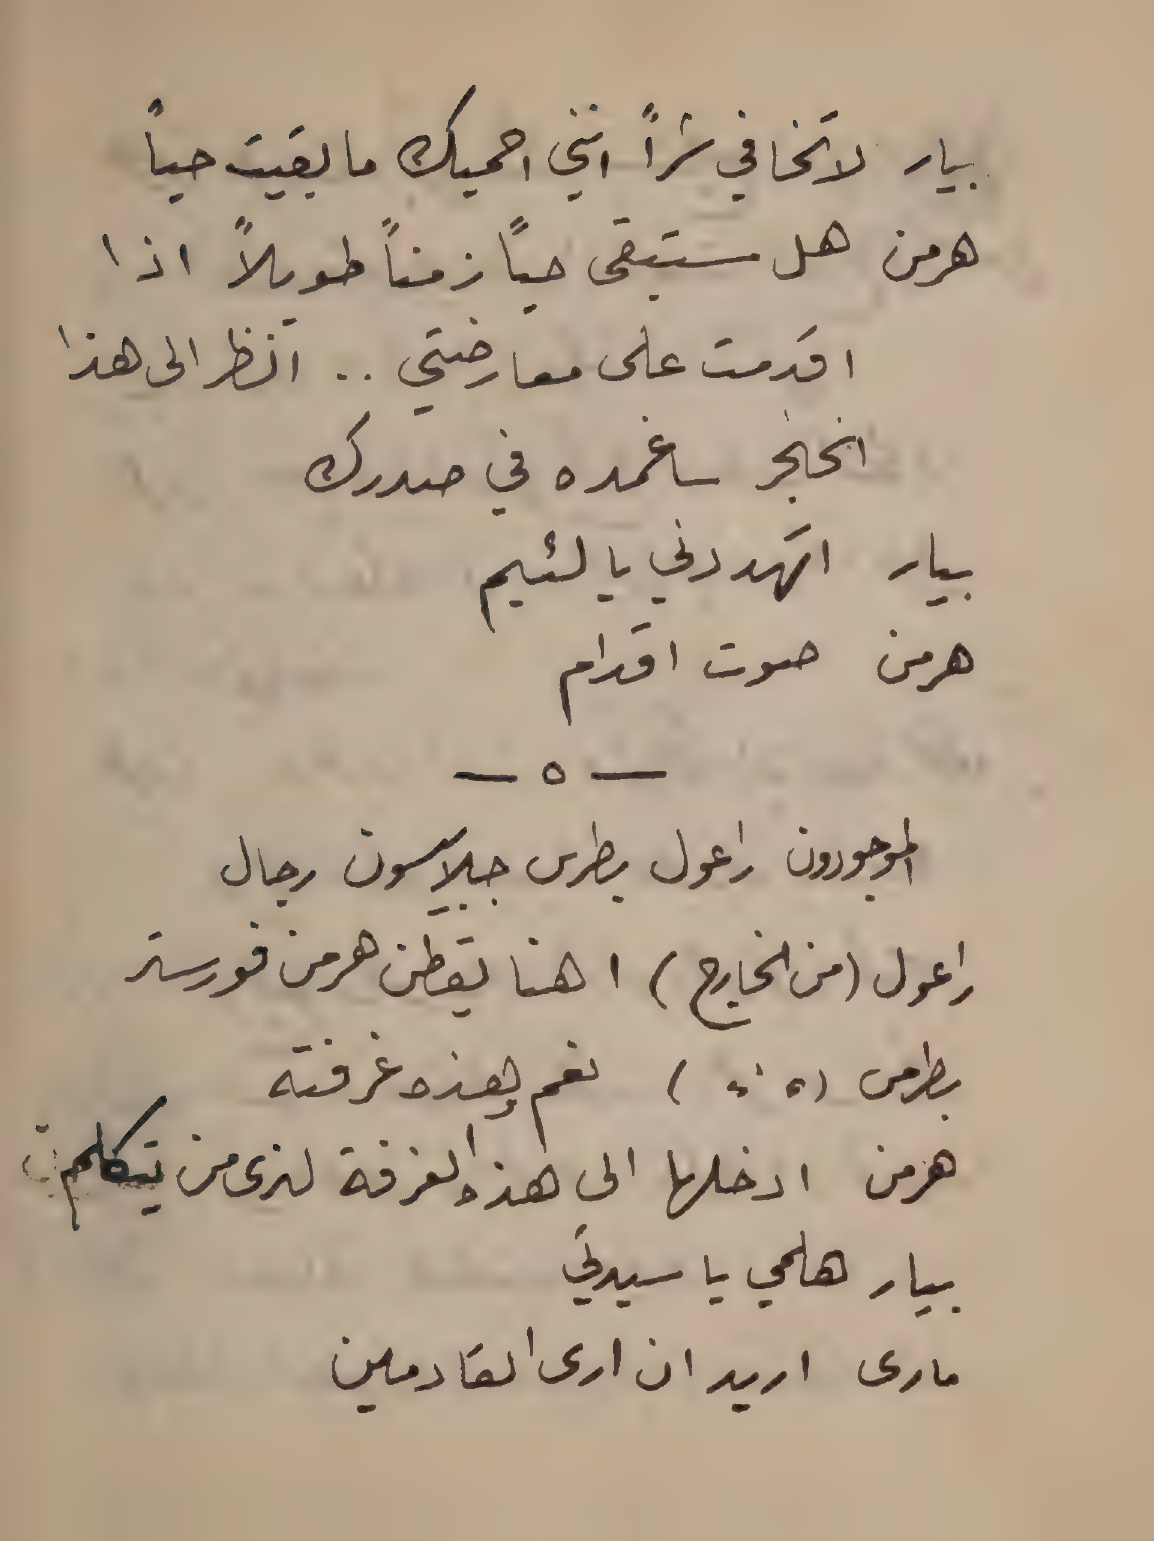 بيار لا تخافي شراً انني احميك ما بقيت حياً
هرمن هل ستبقى حياً زمناً طويلاً اذا
اقدمت على معارضتي .. انظر الى هذا
الخنجر ساغمده في صدرك
بيار اتهددني يا لئيم
هرمن صوت اقدام
— ٥ —
الموجودون راعول بطرس جيلاسون رجال
راعول (من الخارج) اهنا يقطن هرمن فورستر
بطرس ( " " ) نعم وهذه غرفته
هرمن ادخلها الى هذه الغرفة لنرى من يتكلم
بيار هلمي يا سيدتي
مارى اريد ان ارى القادمين